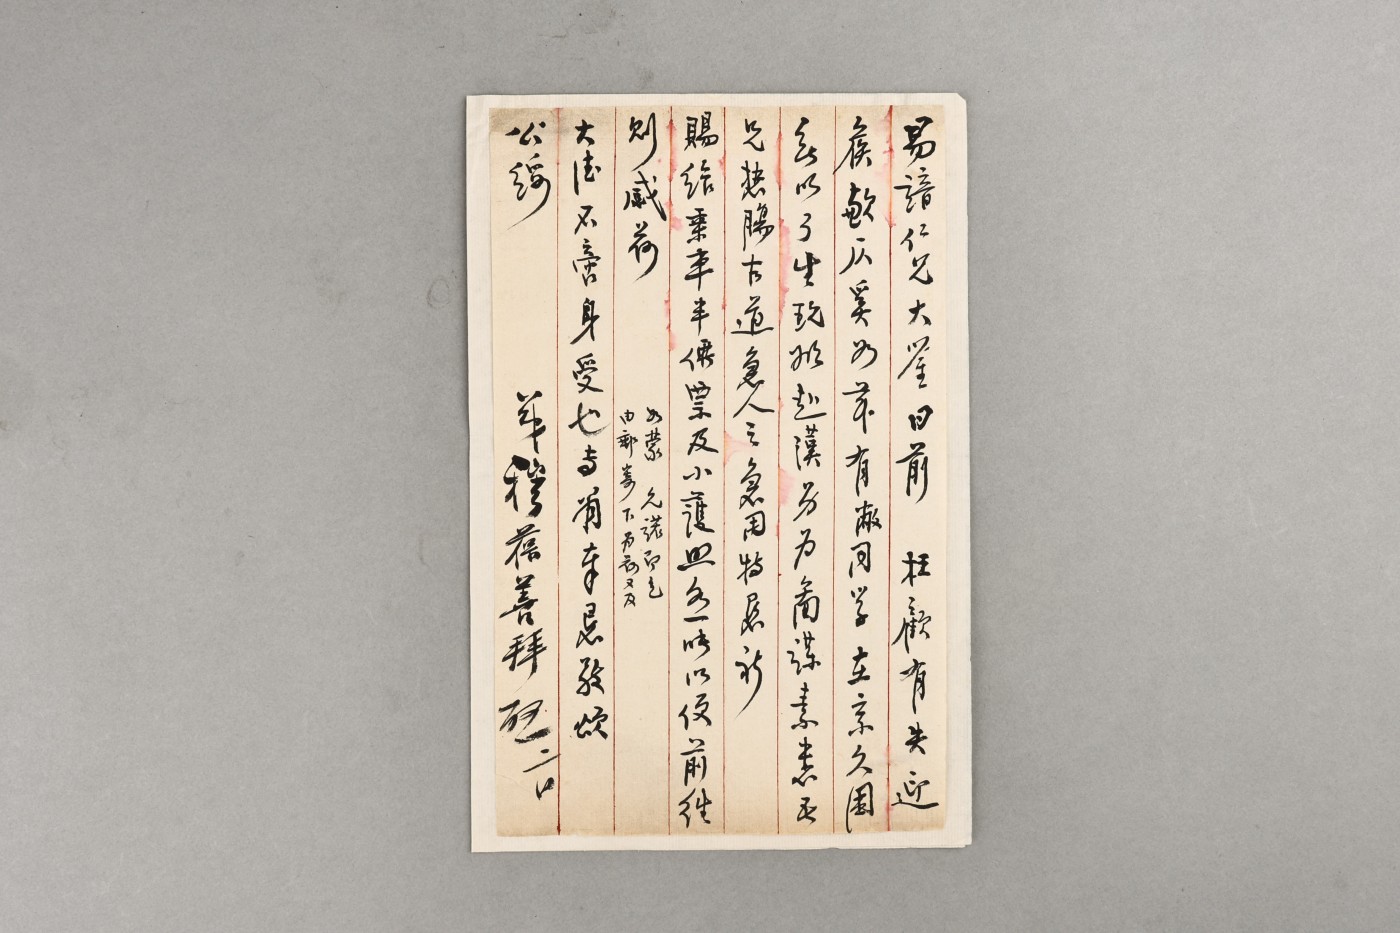 易諳仁兄大鑒日前 枉顧有失迎
候歉仄奚如茲有敝同學在京久困
無以了生現擬赴漢另為商謀素悉吾
兄熱腸古道急人之急用特懇祈
賜給乘車半價票及小護照各一時以便前往
則感荷
如蒙 允諾即乞
由郵寄下為荷又及
大德不啻身受也專肅奉懇敬頌
公綏
弟穆蓓善拜啟 二十日